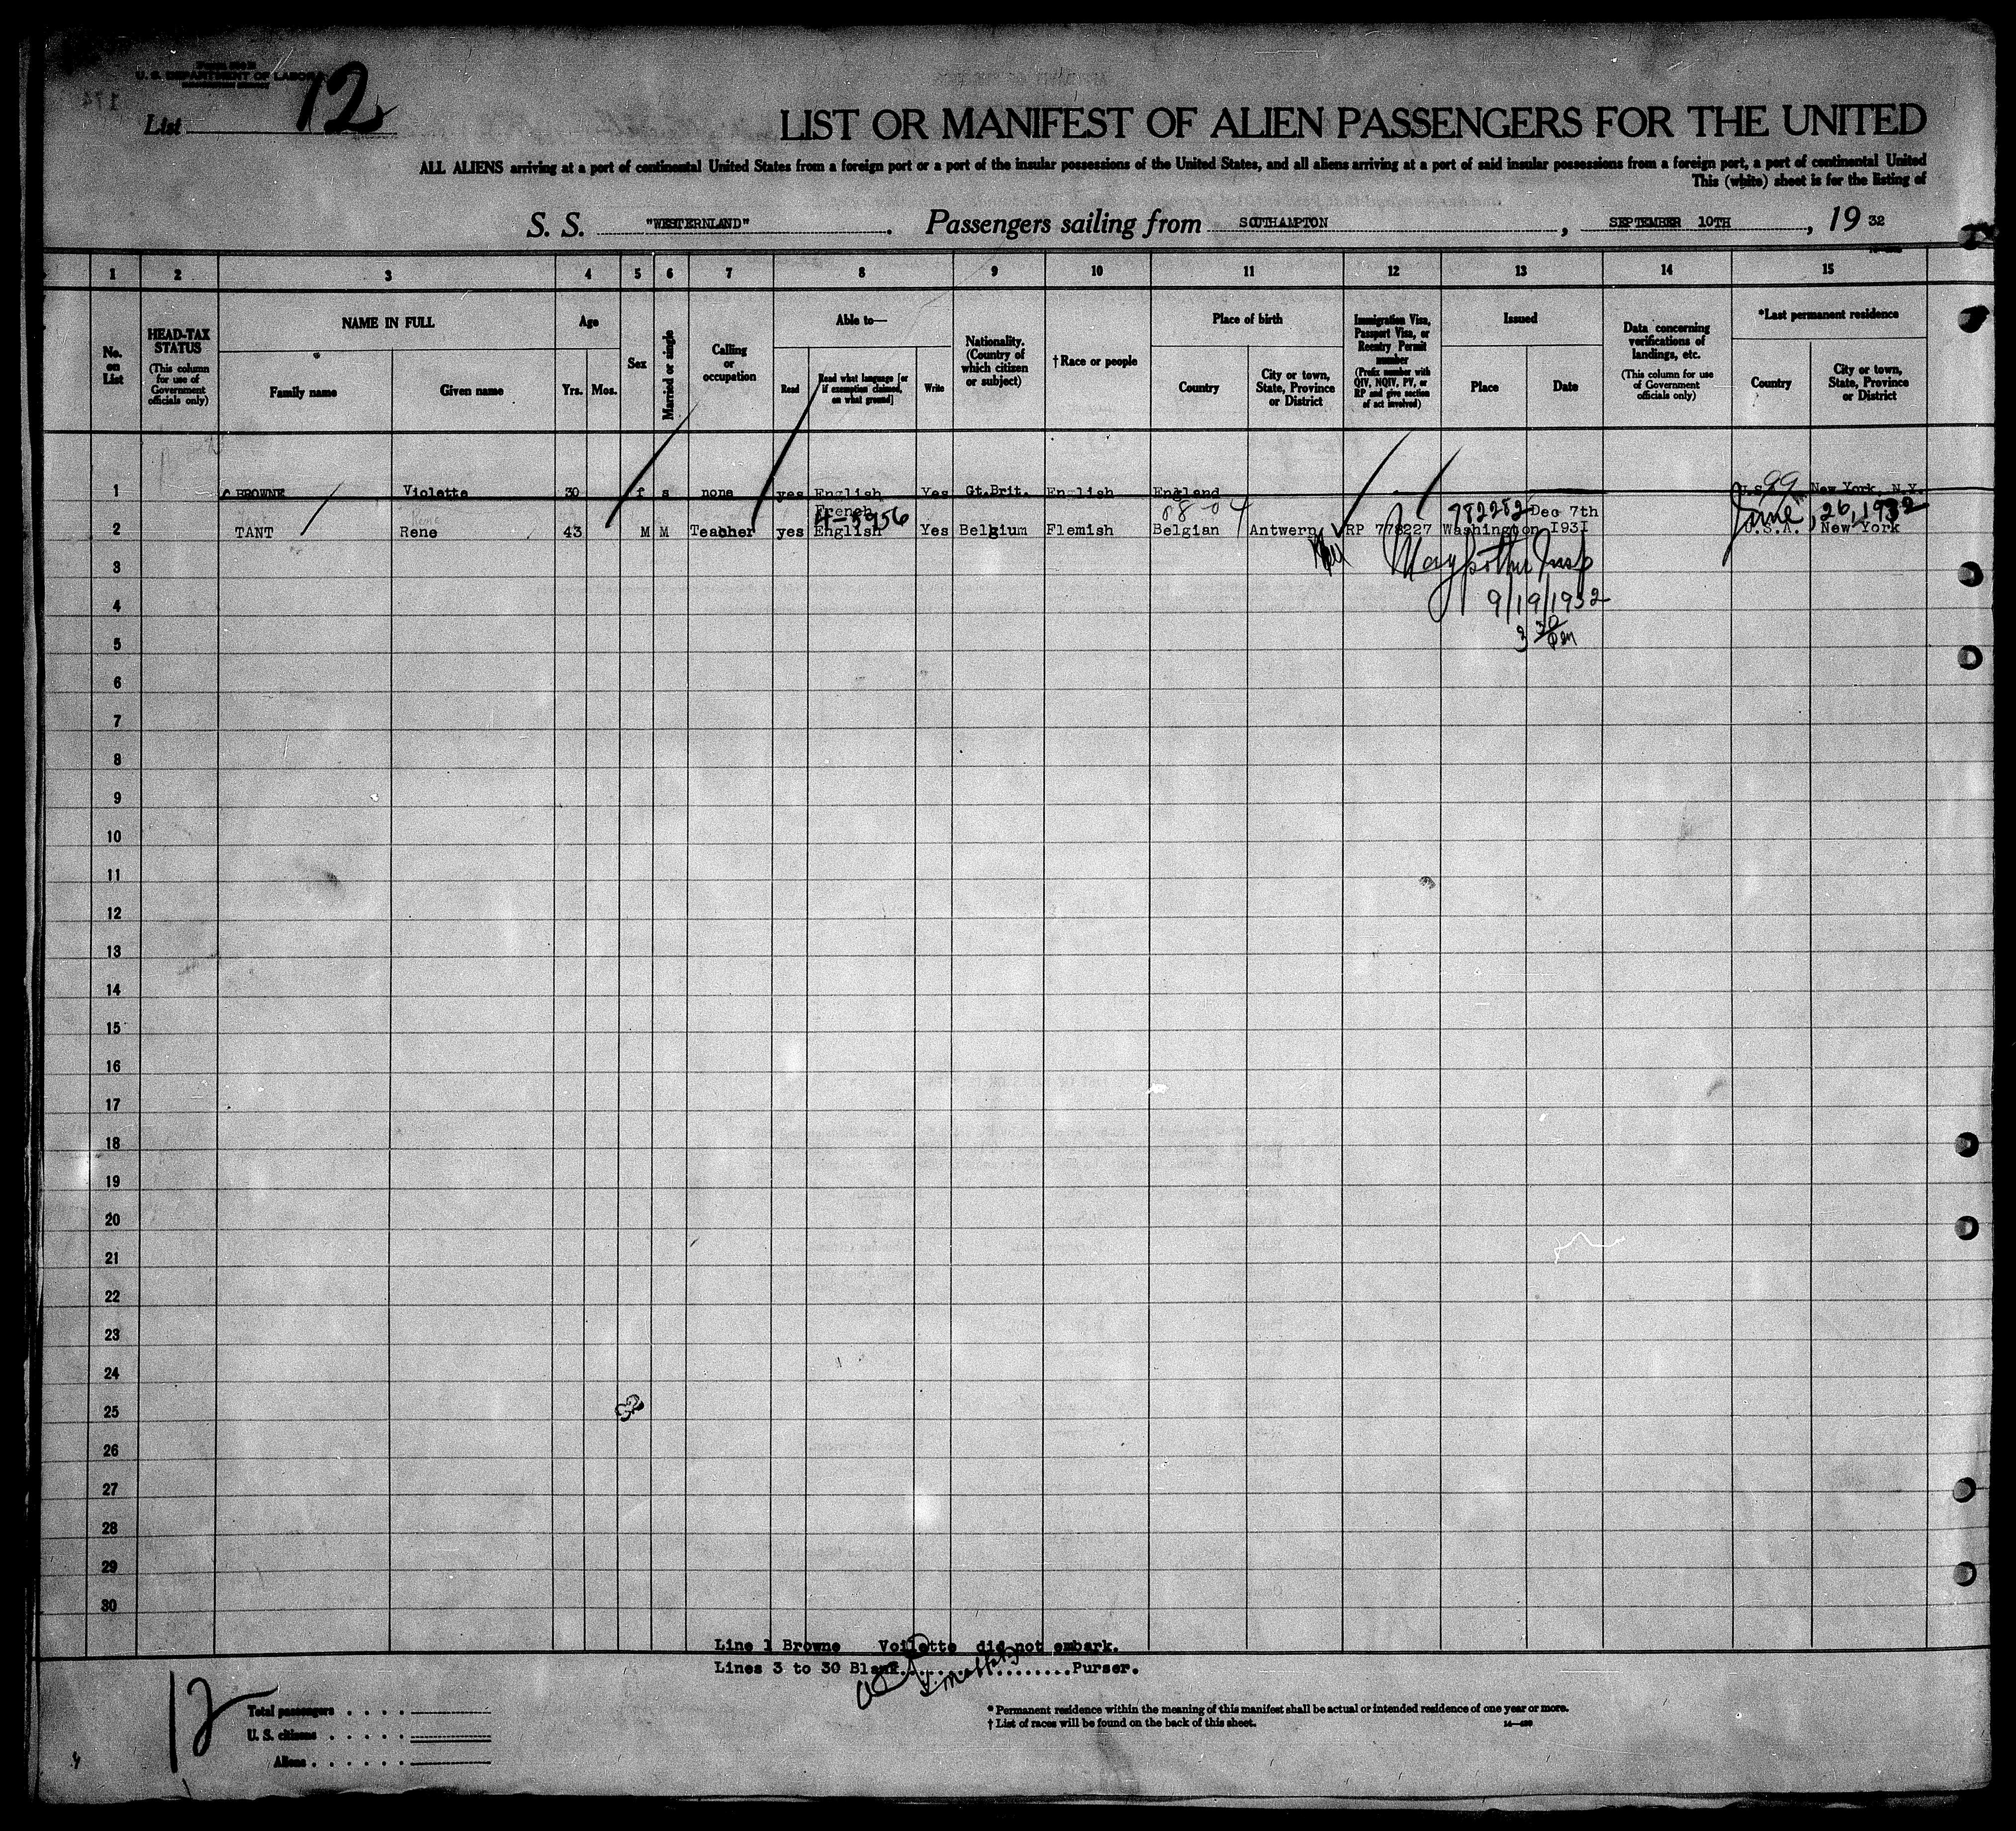 U. S. DEPARTMENT OF LABOR
List 12
LIST OR MANIFEST OF ALIEN PASSENGERS FOR THE UNITED
ALL ALIENS arriving at a port of continental United States from a foreign port or a port of the insular possessions of the United States, and all aliens arriving at a port of said insular possessions from a foreign port, a port of continental United
This (white) sheet is for the listing of
S. S. "WESTERNLAND". Passengers sailing from SOUTHAMPTON, SEPTEMBER 10TH, 19 32
1 2 3 4 5 6 7 8 9 10 11 12 13 14 15
No. on List
HEAD-TAX STATUS (This column for use of Government officials only)
NAME IN FULL
Family name Given name
Age
Yrs. Mos.
Sex
Married or single
Calling or occupation
Able to—
Read Read what language [or if exemption claimed, on what ground] Write
Nationality. (Country of which citizen or subject)
†Race or people
Place of birth
Country City or town, State, Province or District
Immigration Visa, Passport Visa, or Reentry Permit number (Prefix number with QIV, NQIV, PV, or RP and give section of act involved)
Issued
Place Date
Data concerning verifications of landings, etc. (This column for use of Government officials only)
*Last permanent residence
Country City or town, State, Province or District
1 BROWNE Violette 30 f s none yes English Yes Gt.Brit. English England U.S. New York, N.Y.
99
French 782282 Dec 7th June, 26, 1932
2 TANT Rene 43 M M Teacher yes English Yes Belgium Flemish Belgian Antwerp RP 778227 Washington I93I U.S.A. New York
3
Insp
4
9/19/1932
5
3 30 pm
6
7
8
9
10
11
12
13
14
15
16
17
18
19
20
21
22
23
24
25
26
27
28
29
30
Line 1 Browne Voilette did not embark.
Lines 3 to 30 Blank...............Purser.
12
Total passengers . . . .
U. S. citizens . . . . .
Aliens . . . . . .
* Permanent residence within the meaning of this manifest shall be actual or intended residence of one year or more.
† List of races will be found on the back of this sheet.